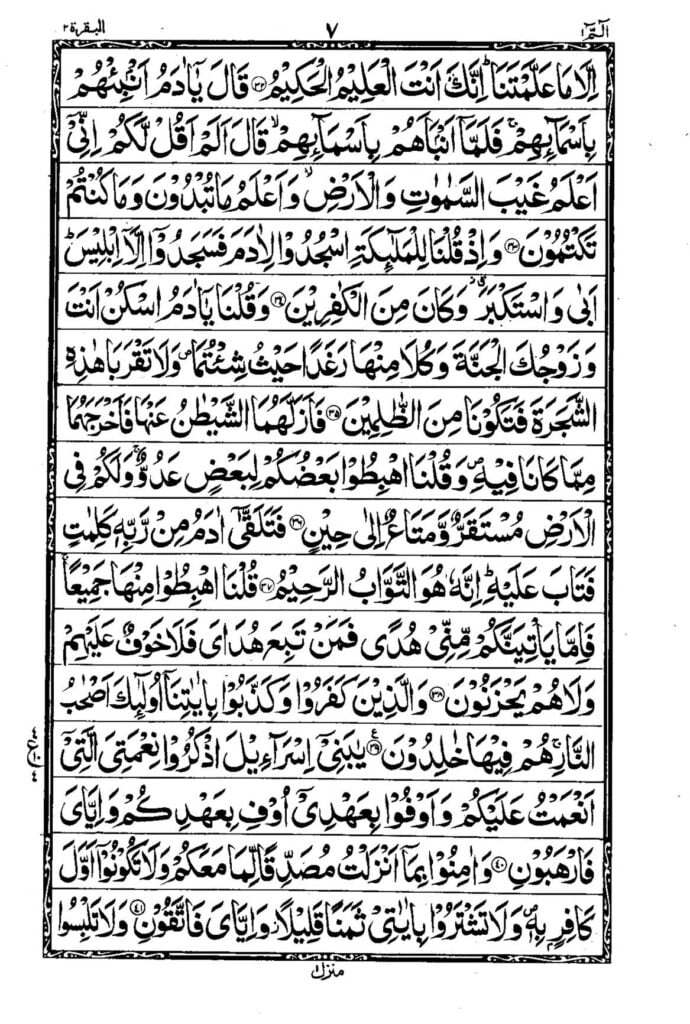 البقرة ٢ ٧ الٓمّٓ ١
اِلَّا مَا عَلَّمْتَنَا ؕ اِنَّكَ اَنْتَ الْعَلِيْمُ الْحَكِيْمُ ﴿۳۲﴾ قَالَ يٰۤاٰدَمُ اَنْۢبِئْهُمْ
بِاَسْمَآئِهِمْ ۚ فَلَمَّاۤ اَنْۢبَاَهُمْ بِاَسْمَآئِهِمْ ۙ قَالَ اَلَمْ اَقُلْ لَّكُمْ اِنِّيْۤ
اَعْلَمُ غَيْبَ السَّمٰوٰتِ وَ الْاَرْضِ ۙ وَ اَعْلَمُ مَا تُبْدُوْنَ وَ مَا كُنْتُمْ
تَكْتُمُوْنَ ﴿۳۳﴾ وَ اِذْ قُلْنَا لِلْمَلٰٓئِكَةِ اسْجُدُوْا لِاٰدَمَ فَسَجَدُوْۤا اِلَّاۤ اِبْلِيْسَ ؕ
اَبٰى وَ اسْتَكْبَرَ ٭۫ وَ كَانَ مِنَ الْكٰفِرِيْنَ ﴿۳۴﴾ وَ قُلْنَا يٰۤاٰدَمُ اسْكُنْ اَنْتَ
وَ زَوْجُكَ الْجَنَّةَ وَ كُلَا مِنْهَا رَغَدًا حَيْثُ شِئْتُمَا ۪ وَ لَا تَقْرَبَا هٰذِهِ
الشَّجَرَةَ فَتَكُوْنَا مِنَ الظّٰلِمِيْنَ ﴿۳۵﴾ فَاَزَلَّهُمَا الشَّيْطٰنُ عَنْهَا فَاَخْرَجَهُمَا
مِمَّا كَانَا فِيْهِ ۪ وَ قُلْنَا اهْبِطُوْا بَعْضُكُمْ لِبَعْضٍ عَدُوٌّ ۚ وَ لَكُمْ فِي
الْاَرْضِ مُسْتَقَرٌّ وَّ مَتَاعٌ اِلٰى حِيْنٍ ﴿۳۶﴾ فَتَلَقّٰۤى اٰدَمُ مِنْ رَّبِّهٖ كَلِمٰتٍ
فَتَابَ عَلَيْهِ ؕ اِنَّهٗ هُوَ التَّوَّابُ الرَّحِيْمُ ﴿۳۷﴾ قُلْنَا اهْبِطُوْا مِنْهَا جَمِيْعًا ۚ
فَاِمَّا يَاْتِيَنَّكُمْ مِّنِّيْ هُدًى فَمَنْ تَبِعَ هُدَايَ فَلَا خَوْفٌ عَلَيْهِمْ
وَ لَا هُمْ يَحْزَنُوْنَ ﴿۳۸﴾ وَ الَّذِيْنَ كَفَرُوْا وَ كَذَّبُوْا بِاٰيٰتِنَاۤ اُولٰٓئِكَ اَصْحٰبُ
النَّارِ ۚ هُمْ فِيْهَا خٰلِدُوْنَ ﴿۳۹﴾ ع يٰبَنِيْۤ اِسْرَآءِيْلَ اذْكُرُوْا نِعْمَتِيَ الَّتِيْۤ
اَنْعَمْتُ عَلَيْكُمْ وَ اَوْفُوْا بِعَهْدِيْۤ اُوْفِ بِعَهْدِكُمْ وَ اِيَّايَ
فَارْهَبُوْنِ ﴿۴۰﴾ وَ اٰمِنُوْا بِمَاۤ اَنْزَلْتُ مُصَدِّقًا لِّمَا مَعَكُمْ وَ لَا تَكُوْنُوْۤا اَوَّلَ
كَافِرٍۭ بِهٖ ۪ وَ لَا تَشْتَرُوْا بِاٰيٰتِيْ ثَمَنًا قَلِيْلًا ۫ وَّ اِيَّايَ فَاتَّقُوْنِ ﴿۴۱﴾ وَ لَا تَلْبِسُوا
منزل ١